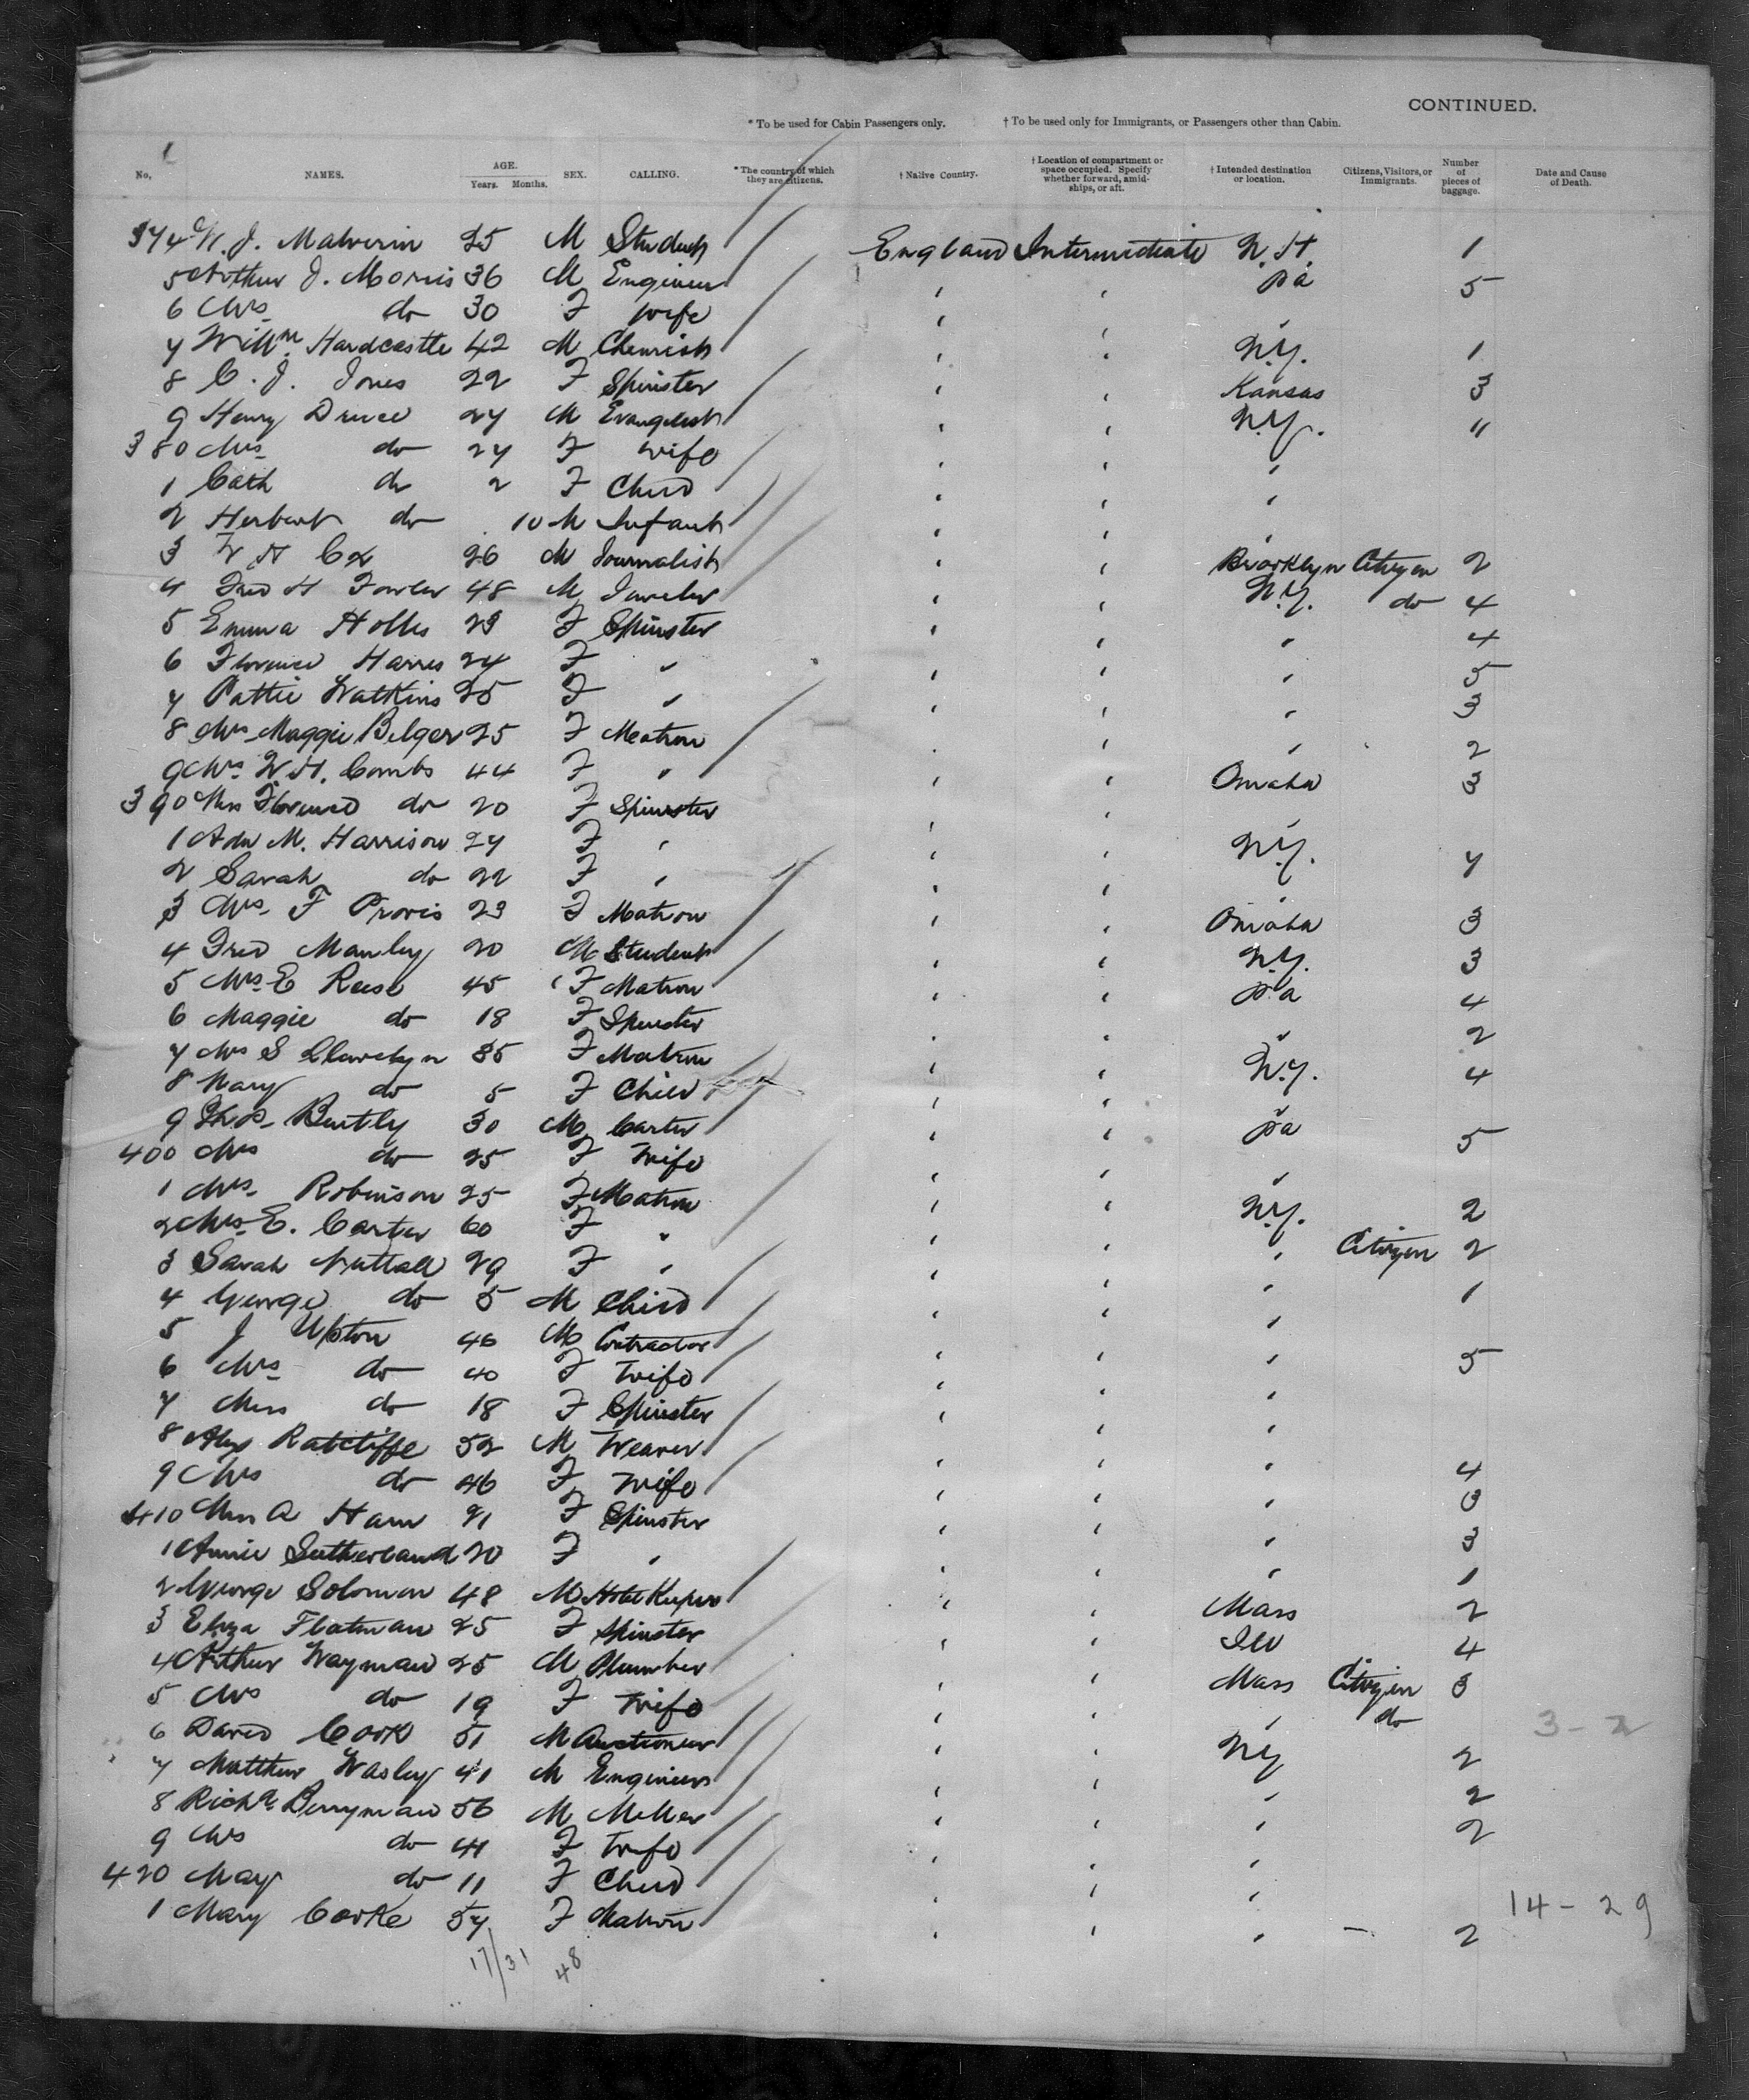 CONTINUED.
* To be used for Cabin Passengers only. † To be used only for Immigrants, or Passengers other than Cabin.
No. NAMES. AGE. Years. Months. SEX. CALLING. * The country of which they are citizens. † Native Country. † Location of compartment or space occupied. Specify whether forward, amidships, or aft. † Intended destination or location. Citizens, Visitors, or Immigrants. Number of pieces of baggage. Date and Cause of Death.
374 W. J. Malverin 25 M Student England Intermediate N.H. 1
5 Arthur J. Morris 36 M Engineer " " Pa 5
6 Mrs do 30 F wife " " "
7 Willm. Hardcastle 42 M Chemist " " N.Y. 1
8 C. J. Jones 22 F Spinster " " Kansas 3
9 Henry Druce 27 M Evangelist " " N.Y. 11
380 Mrs do 27 F wife " " "
1 Cath do 2 F Child " " "
2 Herbert do 10 M Infant " " "
3 W H Cox 26 M Journalist " " Brooklyn Citizen 2
4 Fred H Fowler 48 M Jeweler " " N.Y. do 4
5 Emma Holles 23 F Spinster " " " 4
6 Florence Harris 24 F " " " " 5
7 Pattie Watkins 25 F " " " " 3
8 Mrs Maggie Belger 25 F Matron " " " 2
9 Mrs W.H. Combs 44 F " " " Omaha 3
390 Miss Florence do 20 F Spinster " " "
1 Ada M. Harrison 27 F " " " N.Y. 7
2 Sarah do 22 F " " " "
3 Mrs F Provis 23 F Matron " " Omaha 3
4 Fred Manley 20 M Student " " N.Y. 3
5 Mrs E Reese 45 F Matron " " Pa 4
6 Maggie do 18 F Spinster " " " 2
7 Mrs S Llewelyn 35 F Matron " " N.Y. 4
8 Mary do 5 F Child " " "
9 Thos Bently 30 M Carter " " Pa 5
400 Mrs do 25 F Wife " " "
1 Mrs Robinson 25 F Matron " " N.Y. 2
2 Mrs E. Carter 60 F " " " " Citizen 2
3 Sarah Nuttall 29 F " " " " 1
4 George do 5 M Child " " "
5 J Upton 46 M Contractor " " " 5
6 Mrs do 40 F Wife " " "
7 Miss do 18 F Spinster " " "
8 Alex Ratcliffe 52 M Weaver " " " 4
9 Mrs do 46 F Wife " " " 3
410 Miss A Ham 21 F Spinster " " " 3
1 Annie Sutherland 20 F " " " " 1
2 George Solomon 48 M Hotel Keeper " " Mass 2
3 Eliza Flatman 25 F Spinster " " Ill 4
4 Arthur Wayman 25 M Plumber " " Mass Citizen 3
5 Mrs do 19 F Wife " " " do
6 David Cook 51 M Auctioneer " " NY 2
7 Matthew Wasley 41 M Engineer " " " 2
8 Richd. Berryman 56 M Miller " " " 2
9 Mrs do 41 F Wife " " "
420 May do 11 F Child " " "
1 Mary Cooke 57 F Matron " " " — 2
3-2
14-29
17/31 48